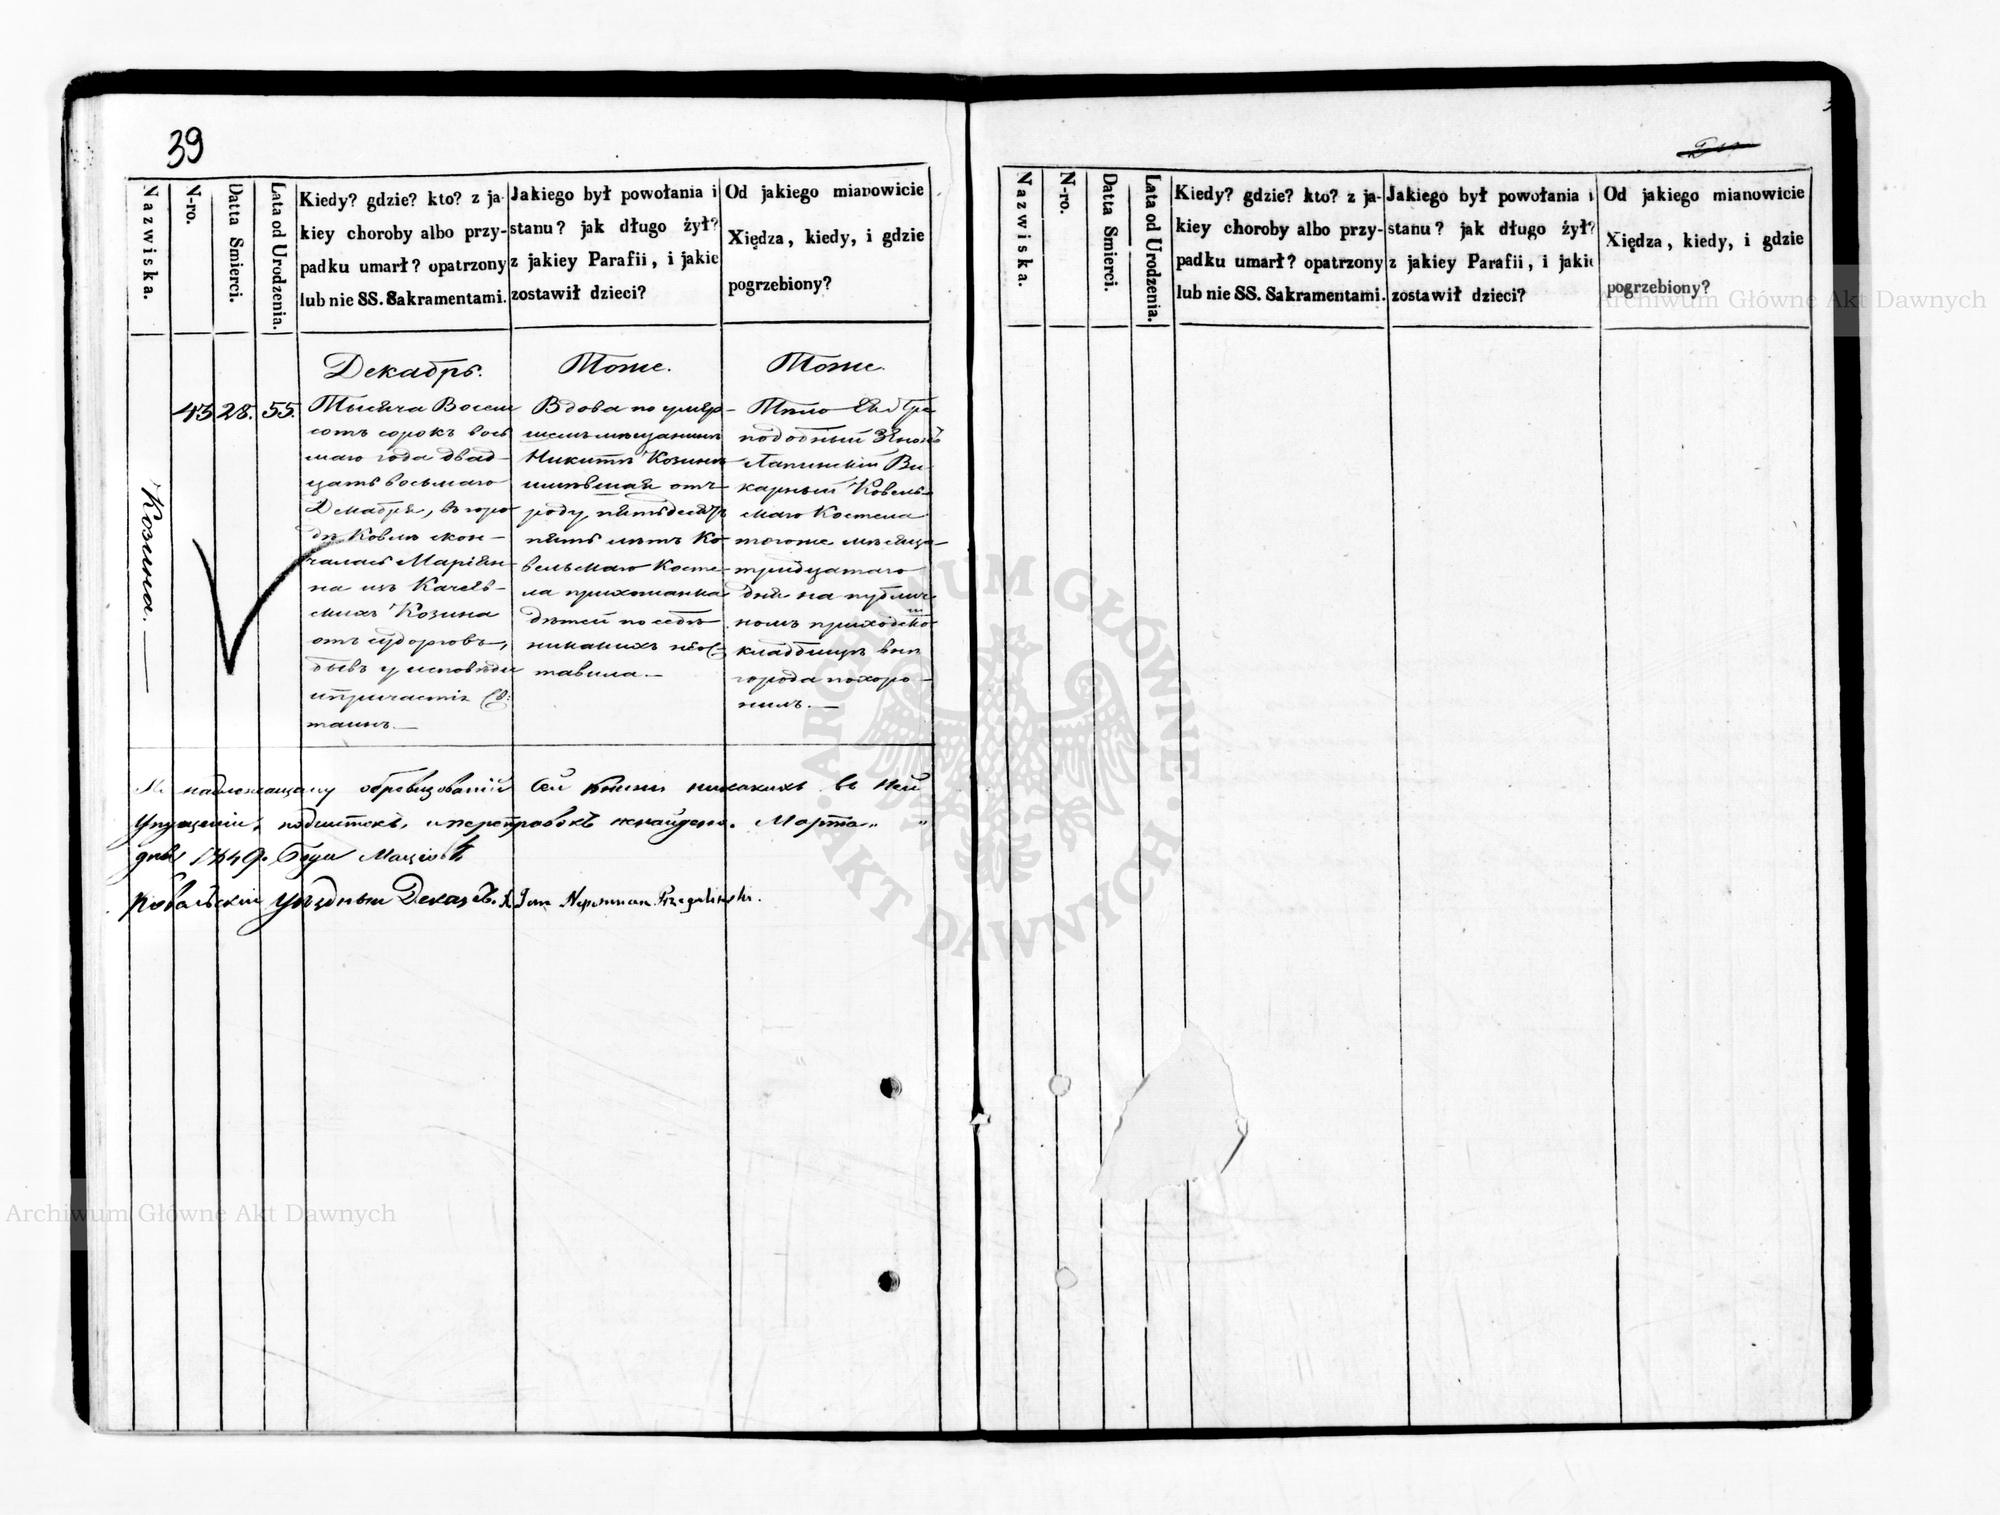 39
Nazwiska.
N-ro.
Datta Smierci.
Lata od Urodzenia.
Kiedy? gdzie? kto? z ja-
kiey choroby albo przy-
padku umarł? opatrzony
lub nie SS. Sakramentami.
Jakiego był powołania i
stanu? jak długo żył?
z jakiey Parafii, i jakie
zostawił dzieci?
Od jakiego mianowicie
Xiędza, kiedy, i gdzie
pogrzebiony?
Козина.
43
28.
55.
Декабрь.
Тысяча Восем
сотъ сорокъ вось
маго года двад-
цать восьмаго
Декабря, въ горо
дѣ Ковлѣ скон-
чалась Маріян-
на изъ
Козина
отъ судорговъ,
бывъ у исповѣди
и причастія Св:
таинъ.—
Тоже.
Вдова по умер-
шемъ мѣщанинѣ
Никитѣ Козинѣ
имѣвшая отъ
роду пятьдесятъ
пять лѣтъ Ко
вельскаго Косте-
ла прихожанка
дѣтей по себѣ
никакихъ неос
тавила.—
Тоже.
Тѣло Ея Пре
подобный Зѣновъ
Лапинскій Ви-
карный Ковель-
скаго Костела
тогоже мѣсяца
тридцатаго
дня на публич
номъ приходско
кладбищѣ внѣ
города похоро-
нилъ.—
По надлежащему обревизованіи сей Книги никакихъ въ ней
упущеній, подчистокъ, и переправокъ ненайдено. Марта „ „
дня 1849. Года
Ковельскій уѣздный Деканъ X. Jan Nepomucen Przegaliński.
Nazwiska.
N-ro.
Datta Smierci.
Lata od Urodzenia.
Kiedy? gdzie? kto? z ja-
kiey choroby albo przy-
padku umarł? opatrzony
lub nie SS. Sakramentami.
Jakiego był powołania i
stanu? jak długo żył?
z jakiey Parafii, i jakie
zostawił dzieci?
Od jakiego mianowicie
Xiędza, kiedy, i gdzie
pogrzebiony?
Archiwum Główne Akt Dawnych
Archiwum Główne Akt Dawnych
ARCHIWUM GŁÓWNE · AKT DAWNYCH ·